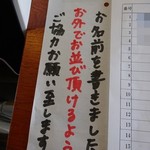 お名前を書きました
お外でお並び頂けるよう
ご協力お願い至します